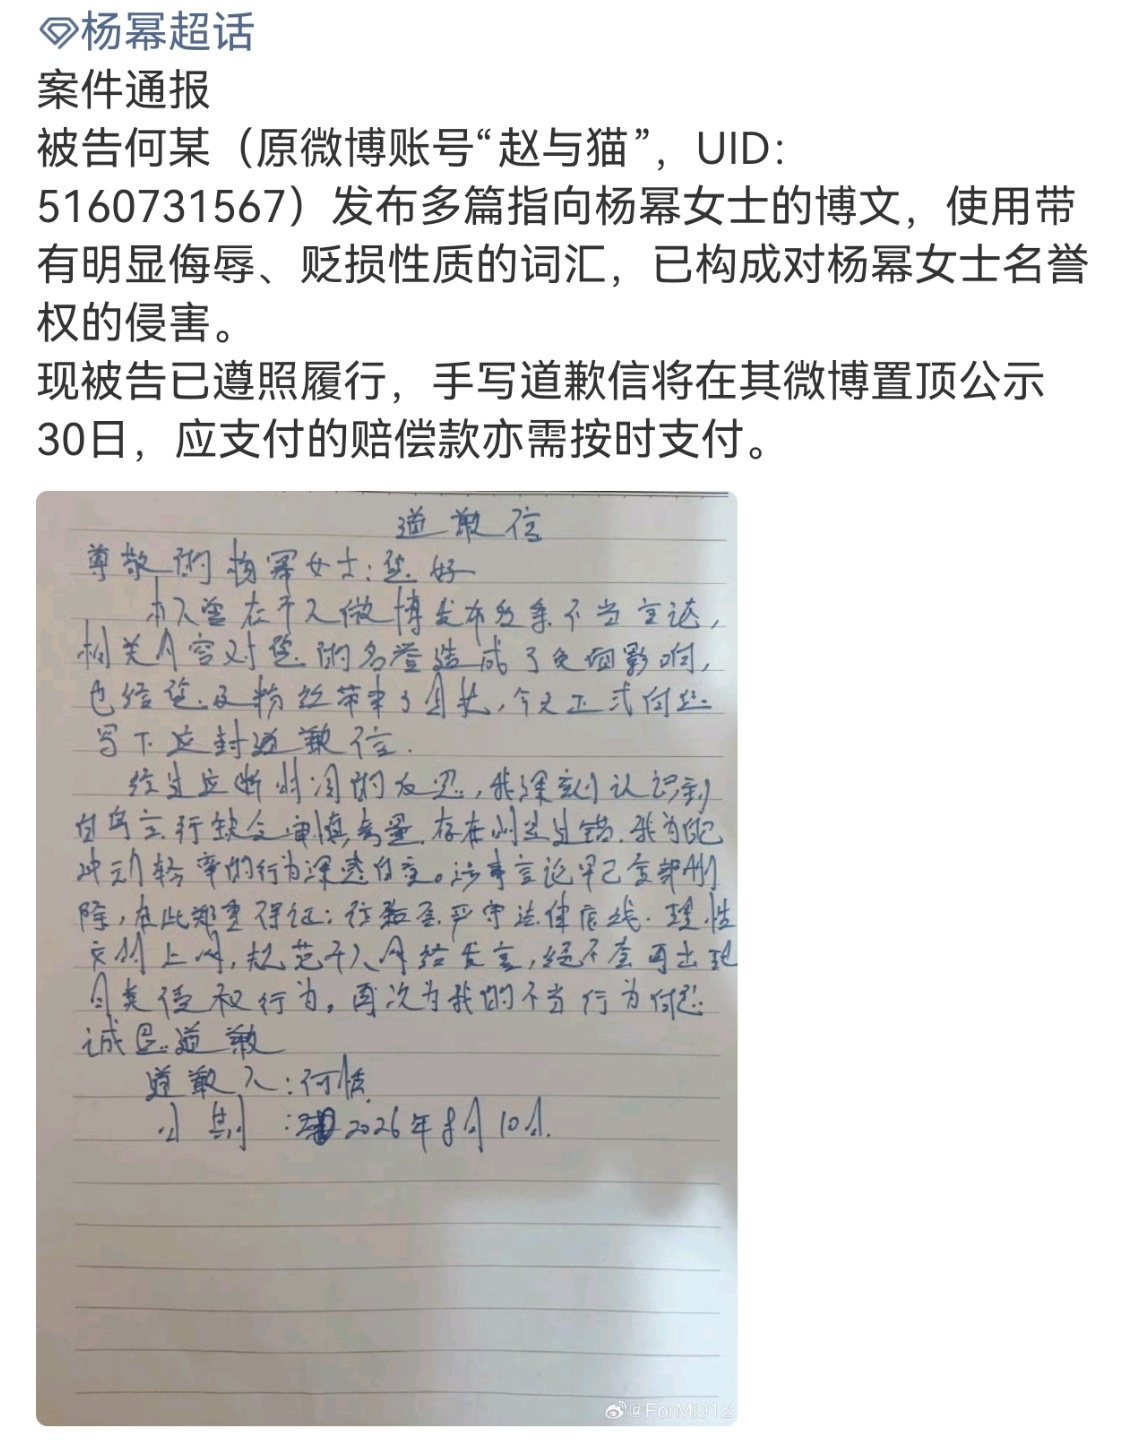 杨幂超话
案件通报
被告何某（原微博账号“赵与猫”，UID：
5160731567）发布多篇指向杨幂女士的博文，使用带
有明显侮辱、贬损性质的词汇，已构成对杨幂女士名誉
权的侵害。
现被告已遵照履行，手写道歉信将在其微博置顶公示
30日，应支付的赔偿款亦需按时支付。
道歉信
尊敬的杨幂女士：您好
本人曾在个人微博发布多条不当言论，
相关内容对您的名誉造成了负面影响，
也给您及粉丝带来了，今天正式向您
写下这封道歉信．
经过这段时间的反思，我深刻认识到
自身言行缺乏审慎考量．存在过错．我为自己
冲动轻率的行为深感自责。涉事言论早已全部删
除，在此郑重保证：往后严守法律底线．理性
文明上网，规范个人网络发言，绝不会再出现
同类侵权行为。再次为我的不当行为向您
诚恳道歉
道歉人：何
日期：2026年8月10日．
@ForMi912